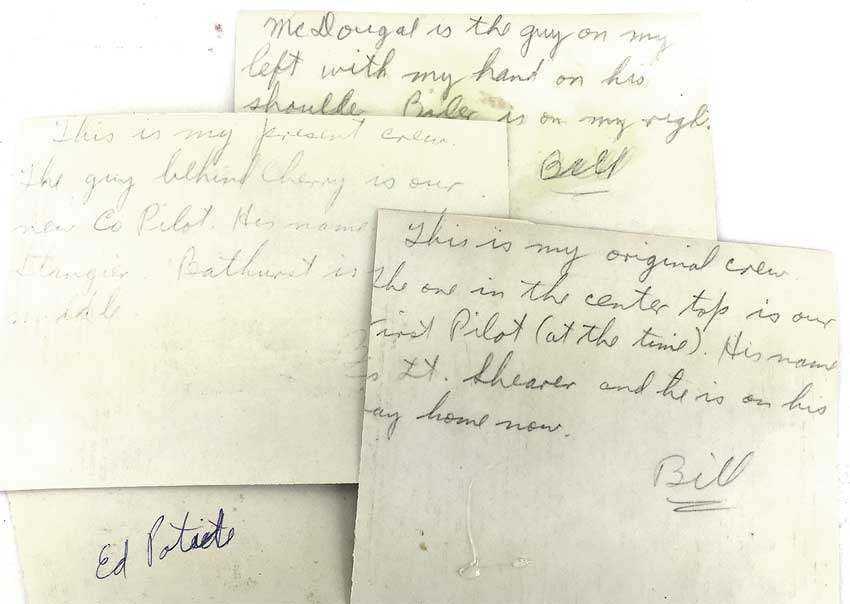 McDougal is the guy on my
left with my hand on his
shoulder. Bader is on my right.
Bill
This is my present crew.
The guy behind Cherry is our
new Co Pilot. His name
Stangier. Bathurst is
middle.
This is my original crew.
the one in the center top is our
First Pilot (at the time). His name
is Lt. Shearer and he is on his
way home now.
Bill
Ed